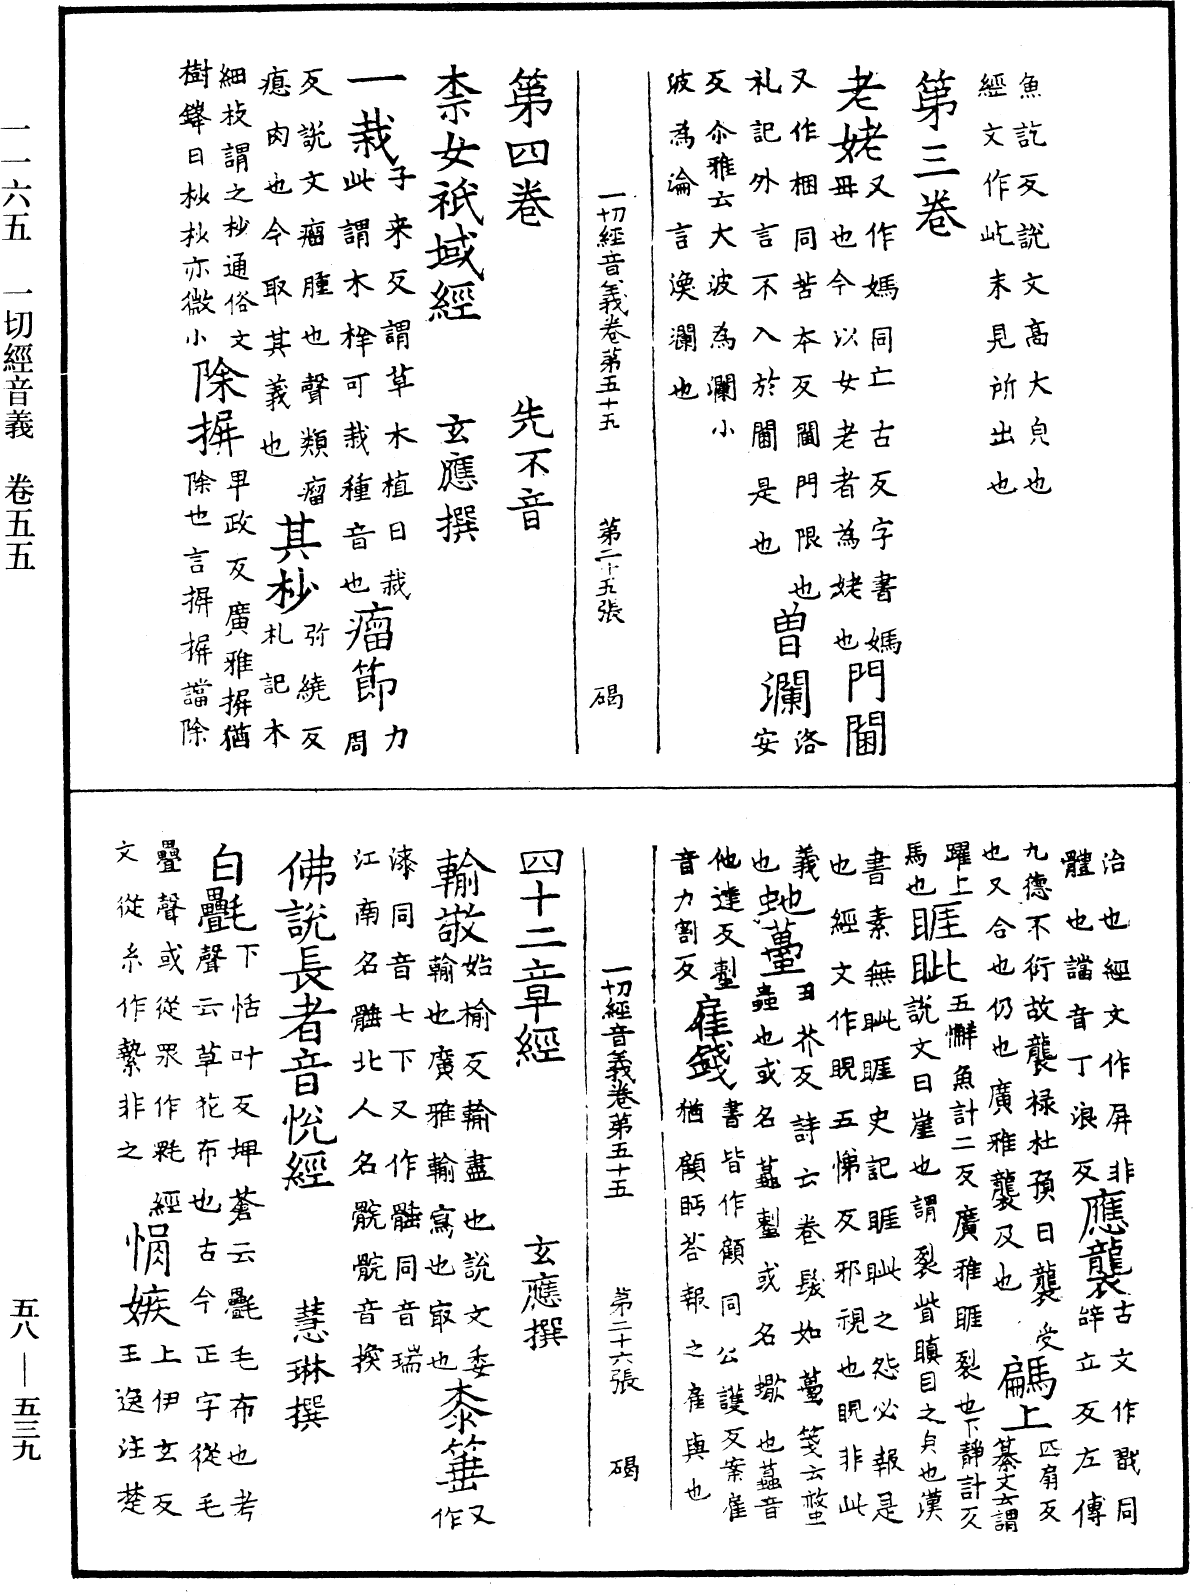 魚訖反說文高大皃也
經文作屹未見所出也
第三卷
老姥又作媽同亡古反字書媽
母也今以女老者為姥也門閫
又作梱同苦本反閫門限也
札記外言不入於閫是也曾瀾洛安
反尒雅云大波為瀾小
波為淪言渙瀾也
一切經音義卷第五十五 第二十五張 碣
第四卷 先不音
柰女祇域經 玄應撰
一栽子来反謂草木植曰栽
此謂木栽可栽種音也瘤節力周
反說文瘤腫也聲類瘤
瘜肉也今取其義也其杪弥繞反
札記木
細枝謂之杪通俗文
樹鋒曰杪杪亦微小除摒畀政反廣雅摒猶
除也言摒摒譡除
治也經文作屏非
體也譡音丁浪反應襲古文作戳同
辝立反左傳
九德不衍故襲禄杜預曰襲受
也又合也仍也廣雅襲及也騗上匹扇反
綦文云謂
躍上睚眦五懈魚計二反廣雅睚裂也下靜計反
馬也睚眦說文曰崖也謂裂眥瞋目之皃也漢
書素無眦睚史記睚眦之怨必報是
也經文作睨五悌反邪視也睨非此
義虵蠆丑芥反詩云卷髮如蠆箋云螫虫
也虵蠆蟲也或名䘍蜇或名蠍也䘍音
他達反蜇
音力割反雇錢書皆作顧同公護反案雇
猶顧眄荅報之雇與也
一切經音義卷第五十五 第二十六張 碣
四十二章經 玄應撰
輸敬始榆反輸盡也說文委
輸也廣雅輸寫也㝡也桼箠又作
漆同音七下又作䯝同音瑞
江南名䯝北人名骯骯音換
佛說長者音悅經 慧琳撰
白氎下恬叶反埤蒼云氎毛布也考
聲云草花布也古今正字從毛
疊聲或從眾作㲲經
文從糸作縶非之悁嫉上伊玄反
王逸注楚
一一六五 一切經音義 卷五五
五八—五三九